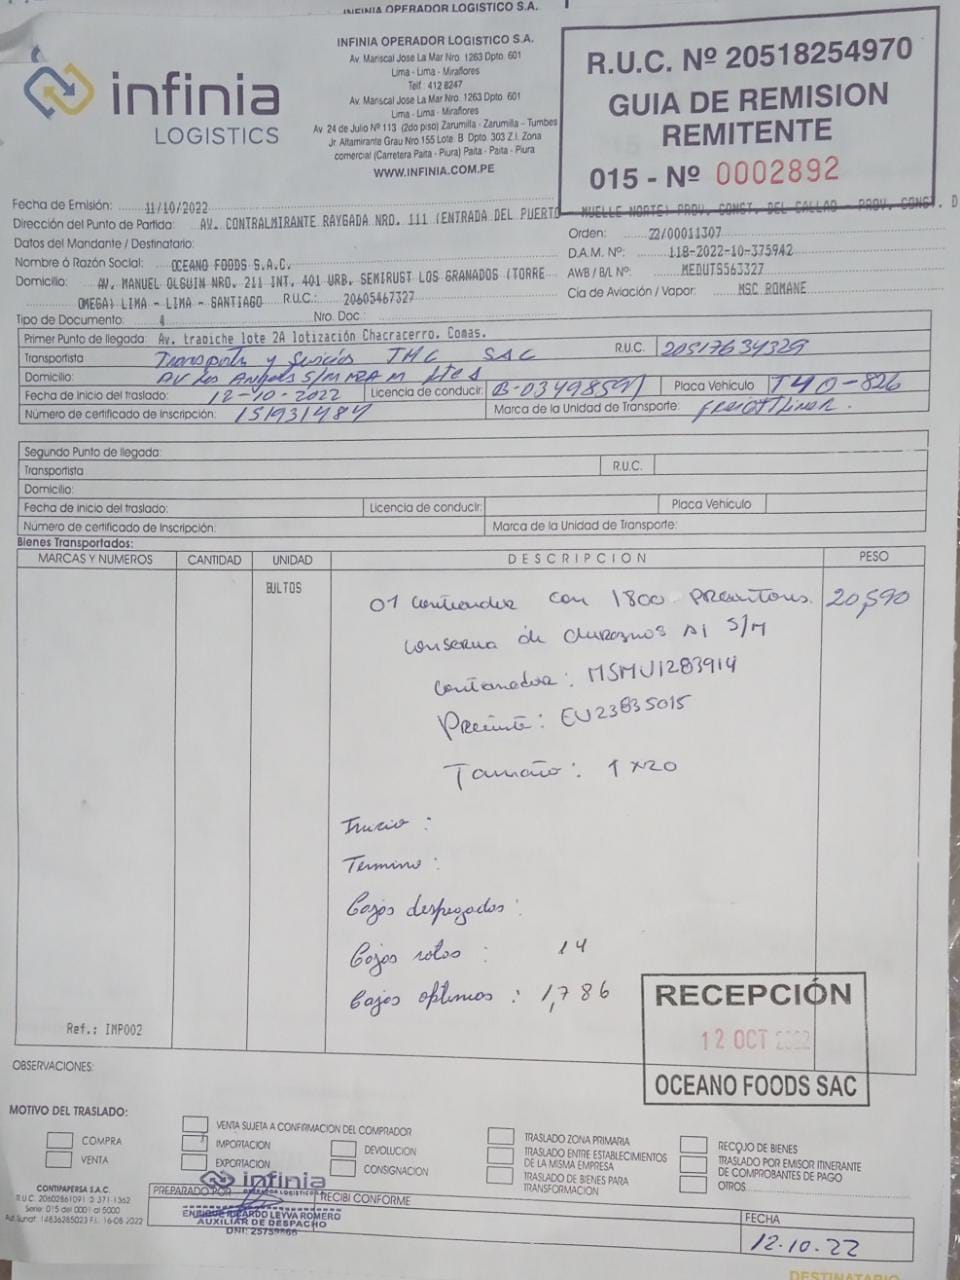 INFINIA OPERADOR LOGISTICO S.A.
infinia
LOGISTICS
INFINIA OPERADOR LOGISTICO S.A.
Av. Mariscal Jose La Mar Nro. 1263 Dpto. 601
Lima - Lima - Miraflores
Telf.: 412 8247
Av. Mariscal Jose La Mar Nro. 1263 Dpto. 601
Lima - Lima - Miraflores
Av. 24 de Julio Nº 113 (2do piso) Zarumilla - Zarumilla - Tumbes
Jr. Altamirante Grau Nro.155 Lote. B Dpto. 303 Z.I. Zona
comercial (Carretera Paita - Piura) Paita - Paita - Piura
WWW.INFINIA.COM.PE
R.U.C. Nº 20518254970
GUIA DE REMISION
REMITENTE
015 - Nº 0002892
Fecha de Emisión: 11/10/2022
Dirección del Punto de Partida: AV. CONTRALMIRANTE RAYGADA NRO. 111 (ENTRADA DEL PUERTO - MUELLE NORTE) PROV. CONST. DEL CALLAO - PROV. CONST. D
Datos del Mandante / Destinatario:
Orden: 22/00011307
Nombre ó Razón Social: OCEANO FOODS S.A.C.
D.A.M. Nº: 118-2022-10-375942
Domicilio: AV. MANUEL OLGUIN NRO. 211 INT. 401 URB. SEMIRUST LOS GRANADOS (TORRE
AWB / B/L Nº: MEDUTS563327
OMEGA) LIMA - LIMA - SANTIAGO R.U.C.: 20605467327
Cia de Aviación / Vapor: MSC ROMANE
Tipo de Documento: 4 Nro. Doc.:
Primer Punto de llegada: Av. trapiche lote 2A lotización Chacracerro. Comas.
Transportista Transportes y Servicios THC SAC R.U.C. 20517634329
Domicilio: AV Los Angeles S/N MZA M Lte 1
Fecha de inicio del traslado: 12-10-2022 Licencia de conducir: Placa Vehículo T4O-826
Número de certificado de Inscripción: 151931484 Marca de la Unidad de Transporte: Freightliner.
Segundo Punto de llegada:
Transportista R.U.C.
Domicilio:
Fecha de inicio del traslado: Licencia de conducir: Placa Vehículo
Número de certificado de Inscripción: Marca de la Unidad de Transporte:
Bienes Transportados:
MARCAS Y NUMEROS CANTIDAD UNIDAD DESCRIPCION PESO
BULTOS
01 Contenedor con 1800 20,590
Conserva de duraznos Al S/M
Contenedor: MSMU1283914
Precinto: EU23835015
Tamaño: 1x20
Inicio:
Termino:
Cajas despegadas:
Cajas rotas: 14
Cajas optimos: 1,786
Ref.: IMP002
RECEPCIÓN
12 OCT 2022
OCEANO FOODS SAC
OBSERVACIONES:
MOTIVO DEL TRASLADO:
COMPRA
VENTA
VENTA SUJETA A CONFIRMACION DEL COMPRADOR
IMPORTACION
EXPORTACION
DEVOLUCION
CONSIGNACION
TRASLADO ZONA PRIMARIA
TRASLADO ENTRE ESTABLECIMIENTOS
DE LA MISMA EMPRESA
TRASLADO DE BIENES PARA
TRANSFORMACION
RECOJO DE BIENES
TRASLADO POR EMISOR ITINERANTE
DE COMPROBANTES DE PAGO
OTROS
CONTIPAPERSA S.A.C.
R.U.C. 20602861091
Serie: 015 del 0001 al 5000
PREPARADO POR
infinia
OPERADOR LOGISTICO
RECIBI CONFORME
ENRIQUE RICARDO LEYVA ROMERO
AUXILIAR DE DESPACHO
FECHA
12.10.22
DESTINATARIO